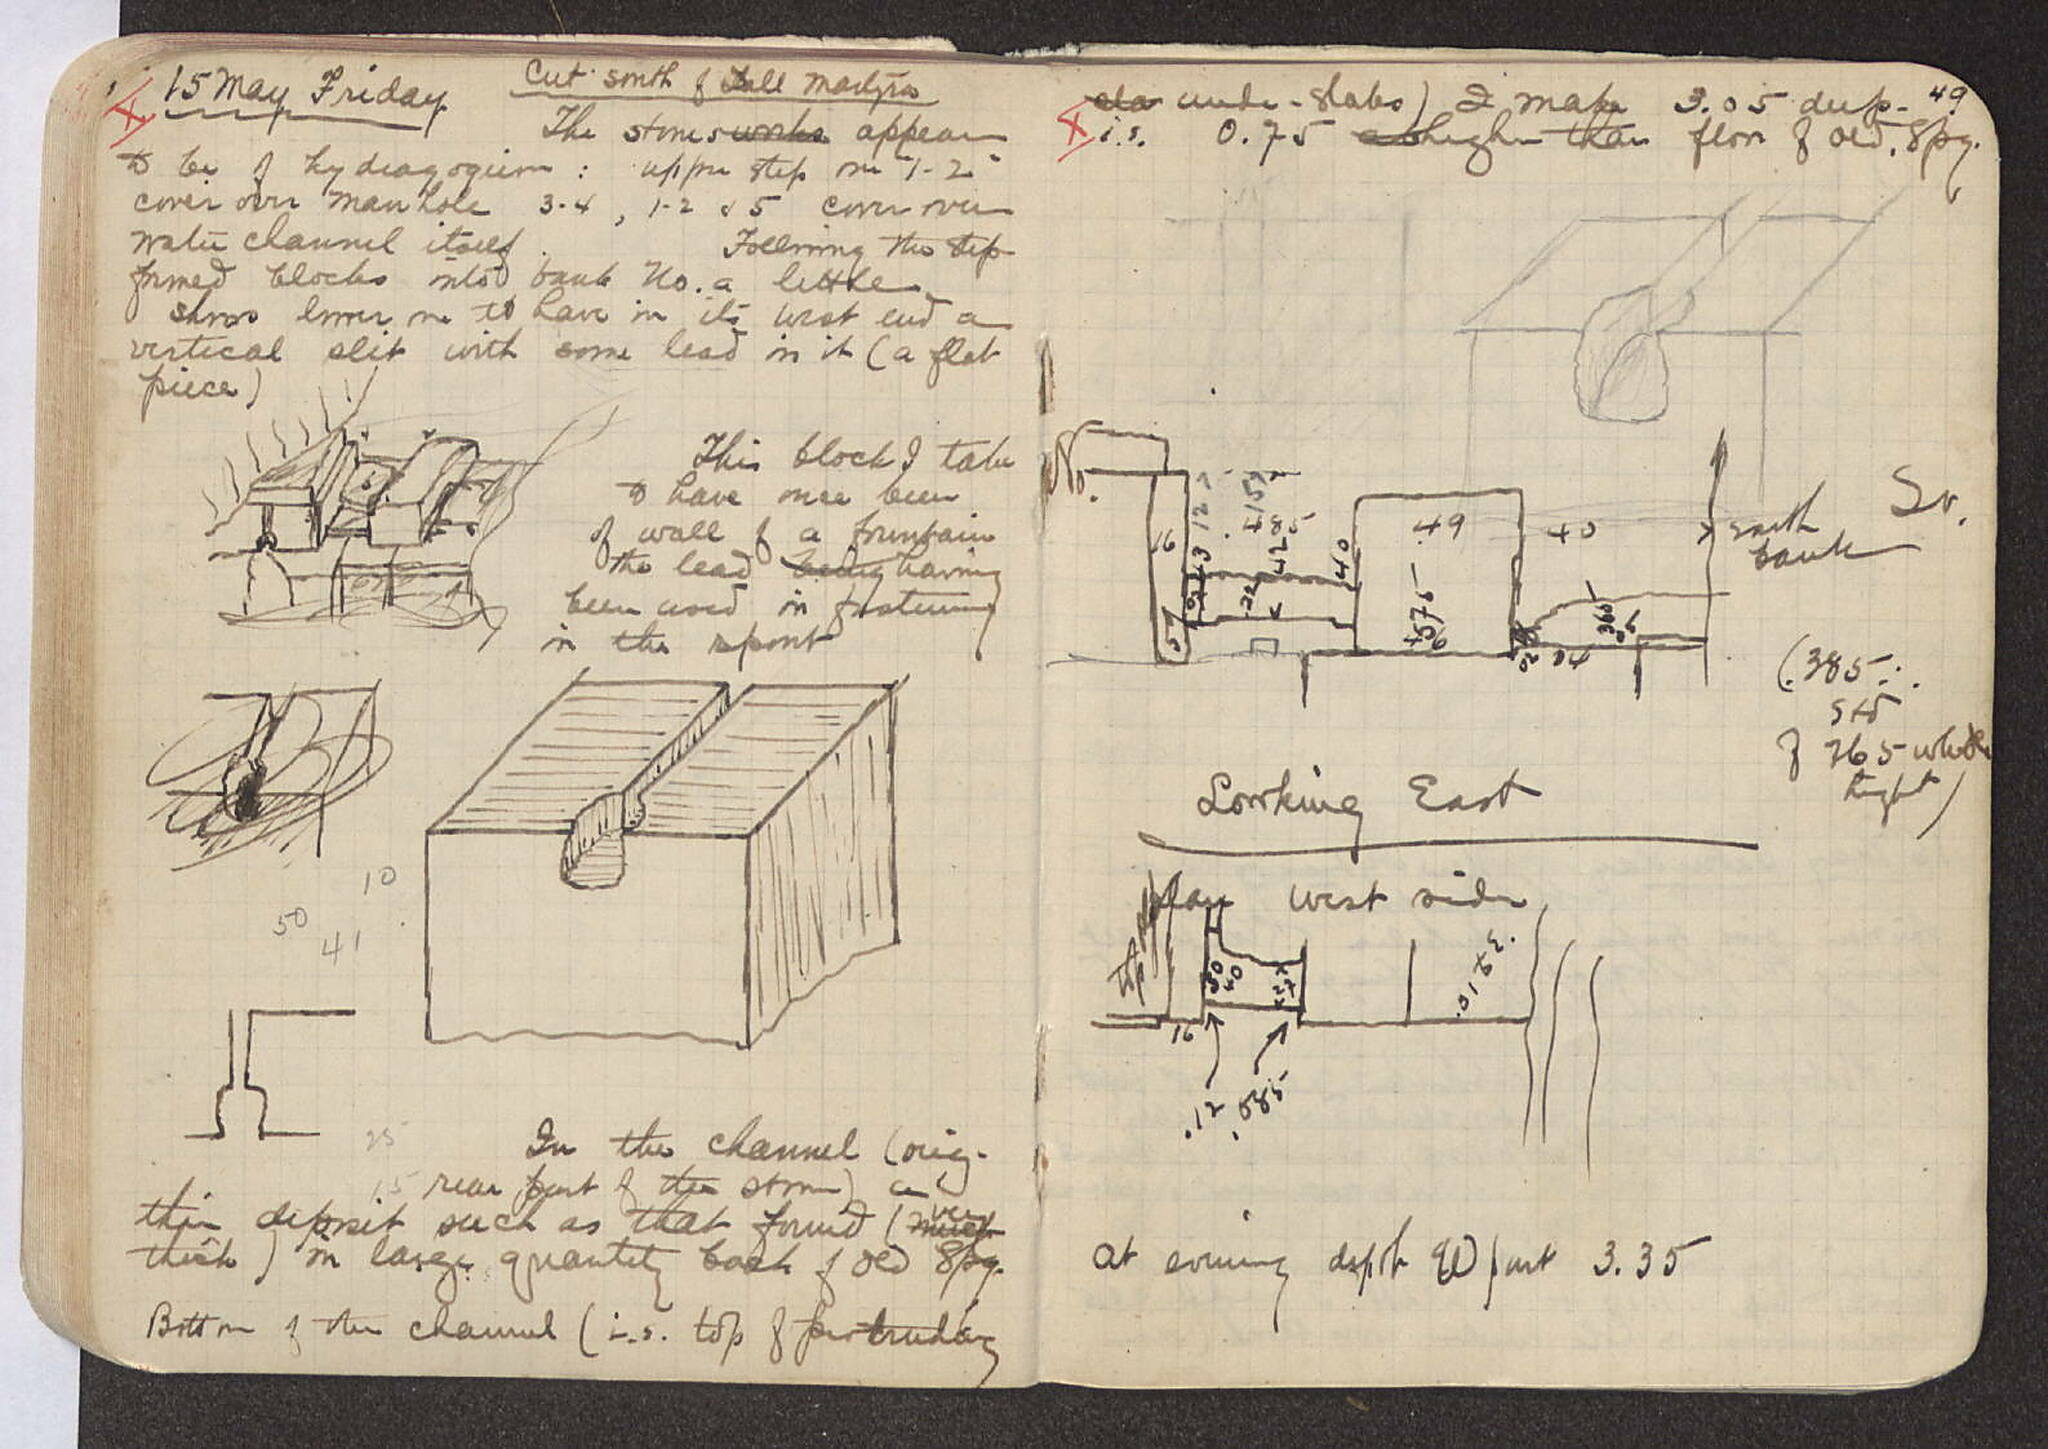 X 15 May Friday Cut south of Tall Martyrs
The stones works appear
to be of hydragogion : upper step one "1-2"
cover over manhole 3-4, 1-2 & 5 cover over
water channel itself. Following the step
formed blocks into bank No. a little
shows lower one to have in its west end a
vertical slit with some lead in it (a flat
piece)
This block I take
to have once been
of wall of a fountain
the lead being having
been used in fastening
in the spout
10
50
41
25
15
In the channel (orig.
rear part of the stone) a
thin deposit such as that found (much very
thick) in large quantity back of old 8pg.
Bottom of the channel (i.e. top of protruding
49
X under-slabs) I make 3.05 deep-
i.e. 0.75 higher than floor of old 8pg.
No.
So.
16
12
.157
.485
.42
.40
.49
40
.575
south
bank
(.385
std
of 765 whole
height)
Looking East
plan west side
top
30
40
27
16
.12 .085
At evening depth 3.35